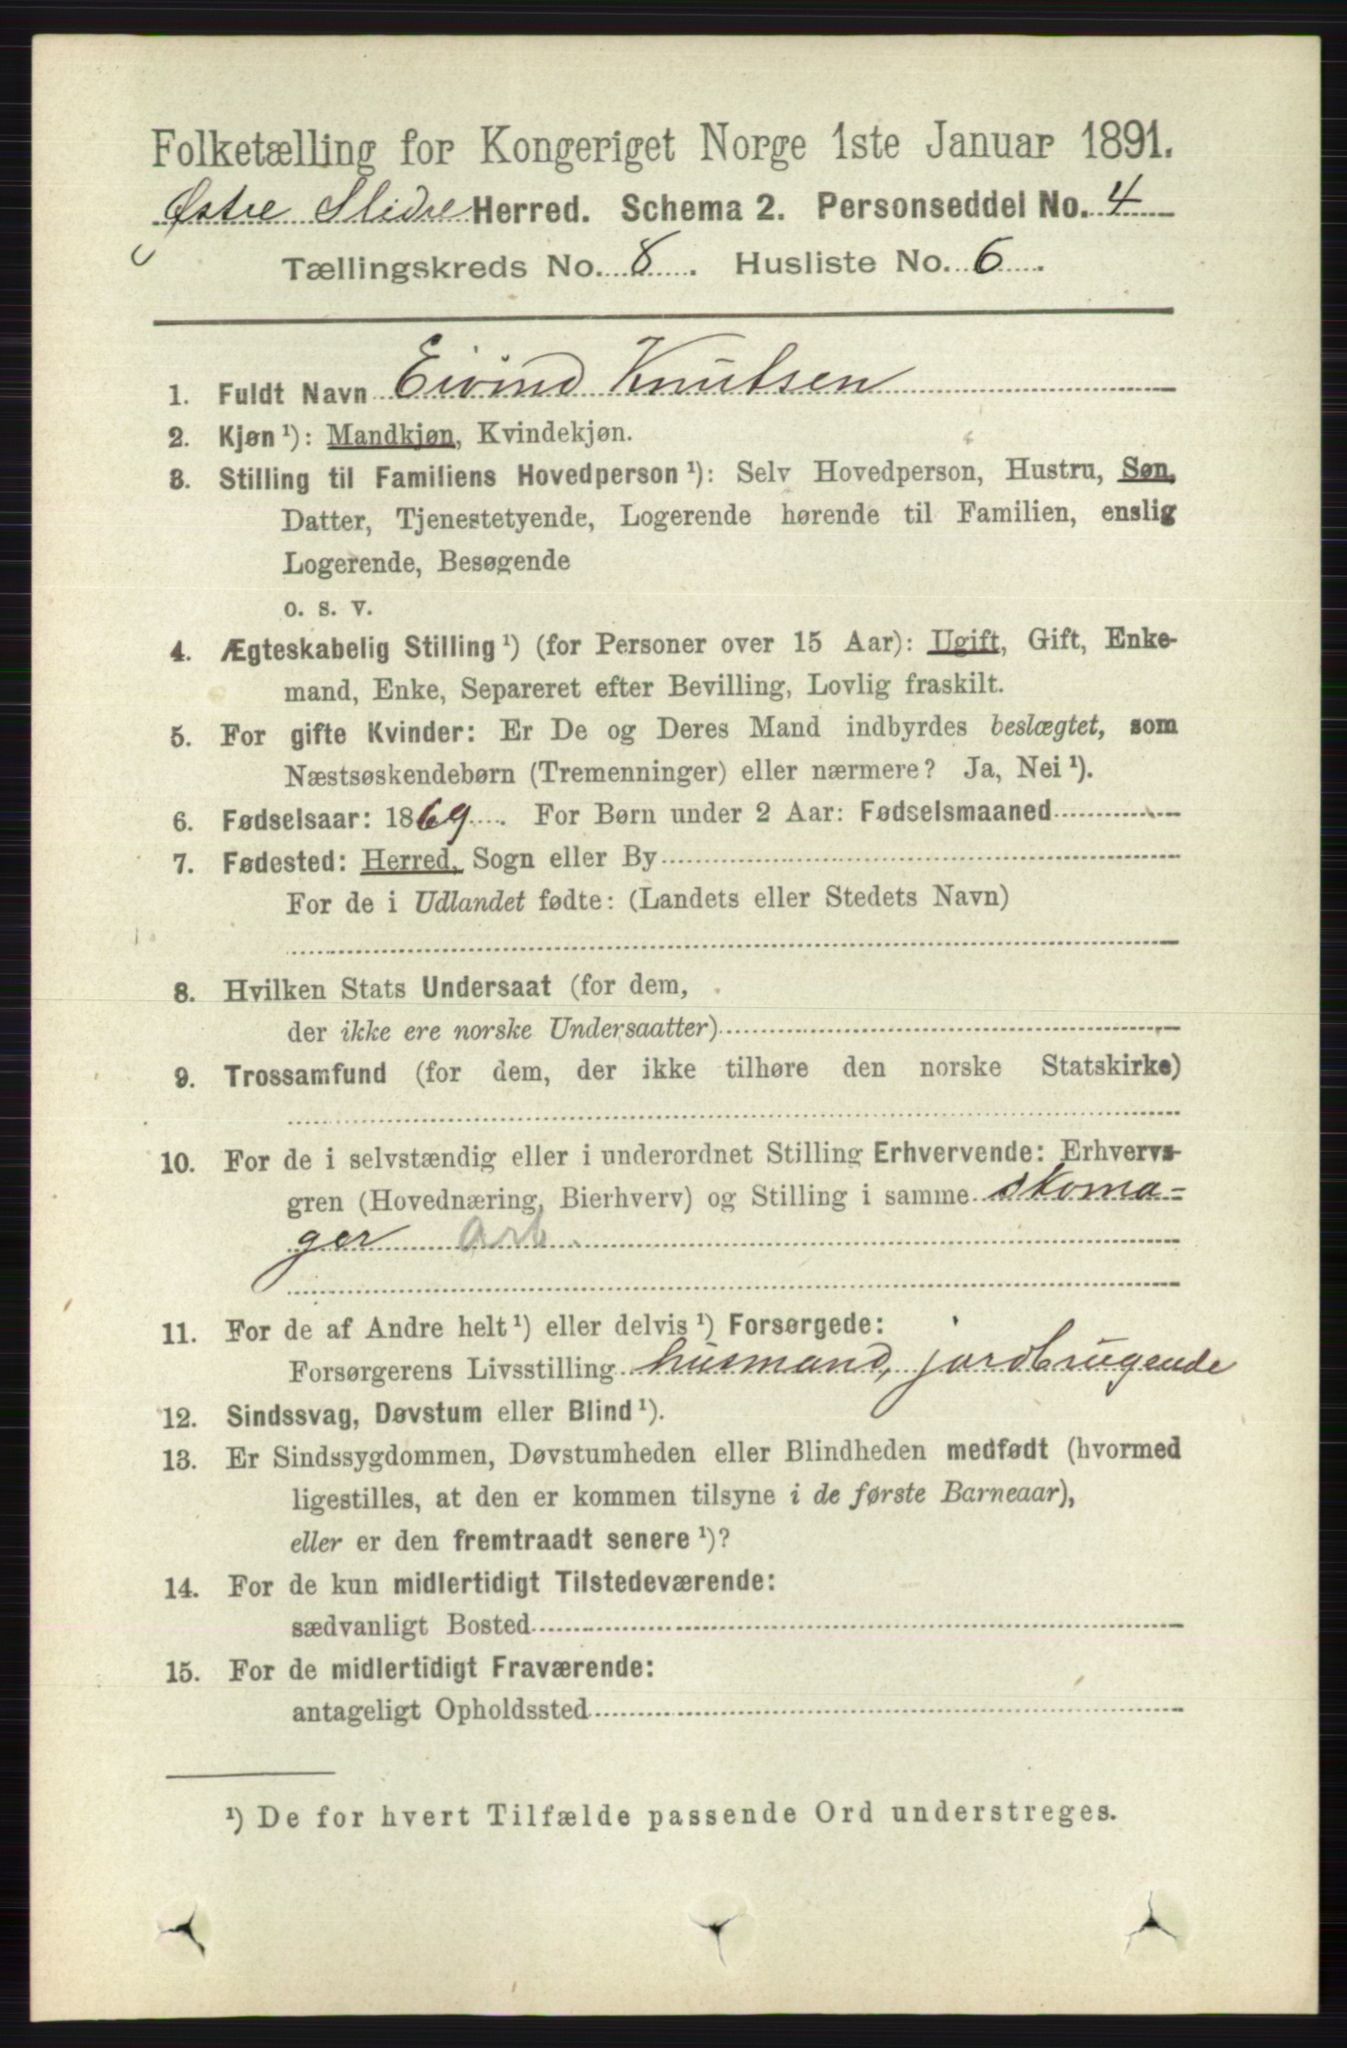 Folketælling for Kongeriget Norge 1ste Januar 1891.
Østre Slidre Herred. Schema 2. Personseddel No. 4
Tællingskreds No. 8. Husliste No. 6.
1. Fuldt Navn Eivind Knutsen
2. Kjøn¹): Mandkjøn, Kvindekjøn.
3. Stilling til Familiens Hovedperson¹): Selv Hovedperson, Hustru, Søn,
Datter, Tjenestetyende, Logerende hørende til Familien, enslig
Logerende, Besøgende
o. s. v.
4. Ægteskabelig Stilling¹) (for Personer over 15 Aar): Ugift, Gift, Enke-
mand, Enke, Separeret efter Bevilling, Lovlig fraskilt.
5. For gifte Kvinder: Er De og Deres Mand indbyrdes beslægtet, som
Næstsøskendebørn (Tremenninger) eller nærmere? Ja, Nei¹).
6. Fødselsaar: 1869. For Børn under 2 Aar: Fødselsmaaned
7. Fødested: Herred, Sogn eller By
For de i Udlandet fødte: (Landets eller Stedets Navn)
8. Hvilken Stats Undersaat (for dem,
der ikke ere norske Undersaatter)
9. Trossamfund (for dem, der ikke tilhøre den norske Statskirke)
10. For de i selvstændig eller i underordnet Stilling Erhvervende: Erhvervs-
gren (Hovednæring, Bierhverv) og Stilling i samme skoma-
ger arb.
11. For de af Andre helt¹) eller delvis¹) Forsørgede:
Forsørgerens Livsstilling husmand, jordbrugende
12. Sindssvag, Døvstum eller Blind¹).
13. Er Sindssygdommen, Døvstumheden eller Blindheden medfødt (hvormed
ligestilles, at den er kommen tilsyne i de første Barneaar),
eller er den fremtraadt senere¹)?
14. For de kun midlertidigt Tilstedeværende:
sædvanligt Bosted
15. For de midlertidigt Fraværende:
antageligt Opholdssted
¹) De for hvert Tilfælde passende Ord understreges.